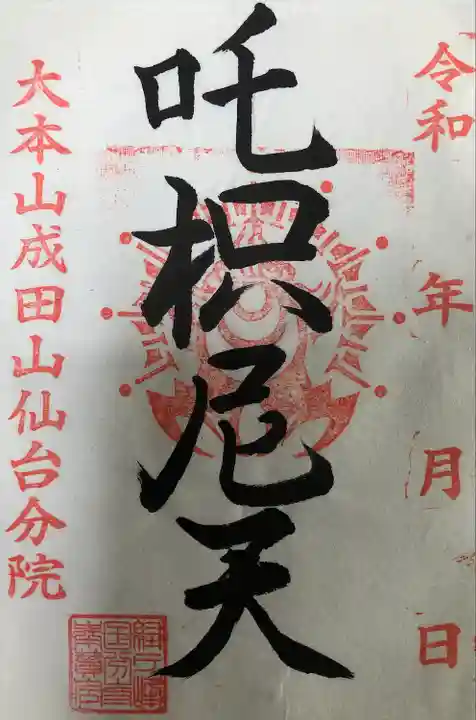 令和 年 月 日
吒枳尼天
大本山成田山仙台分院